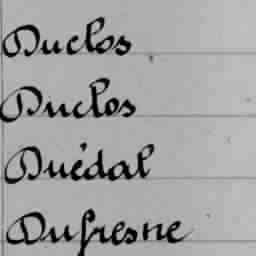 Duclos
Duclos
Duédal
Dufresne